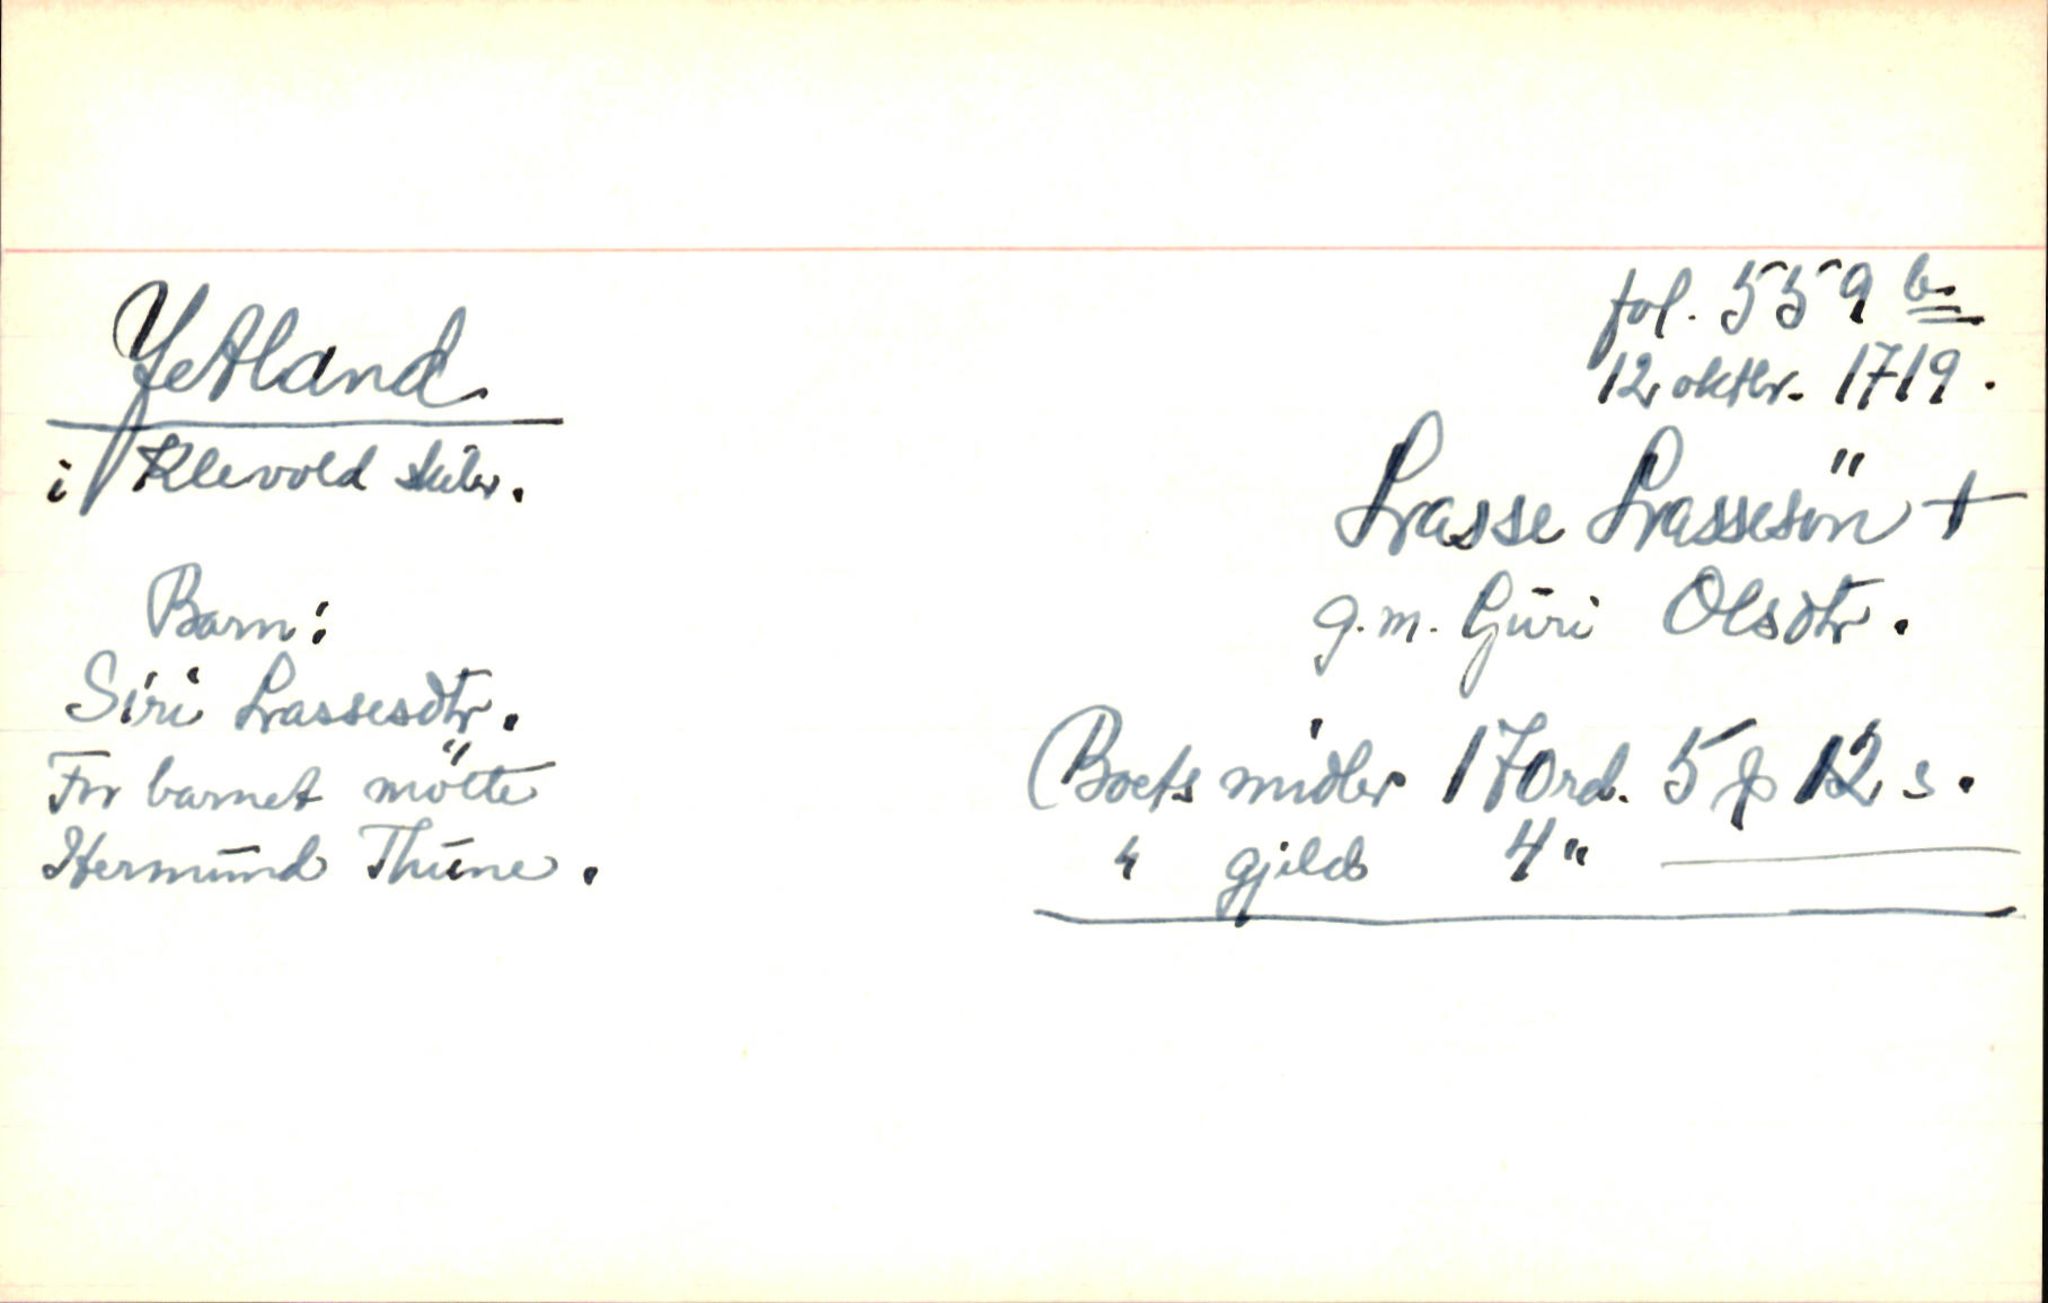 fol. 559 b.
12 oktbr. 1719.
Jetland
i Klevold skibr.
Lasse Lassesön +
g.m. Guri Olsdtr.
Barn:
Siri Lassesdtr.
For barnet mötte
Hermund Thune.
Boets midler 170 rd. 5 ƒ 12 s.
" gjeld 4 "